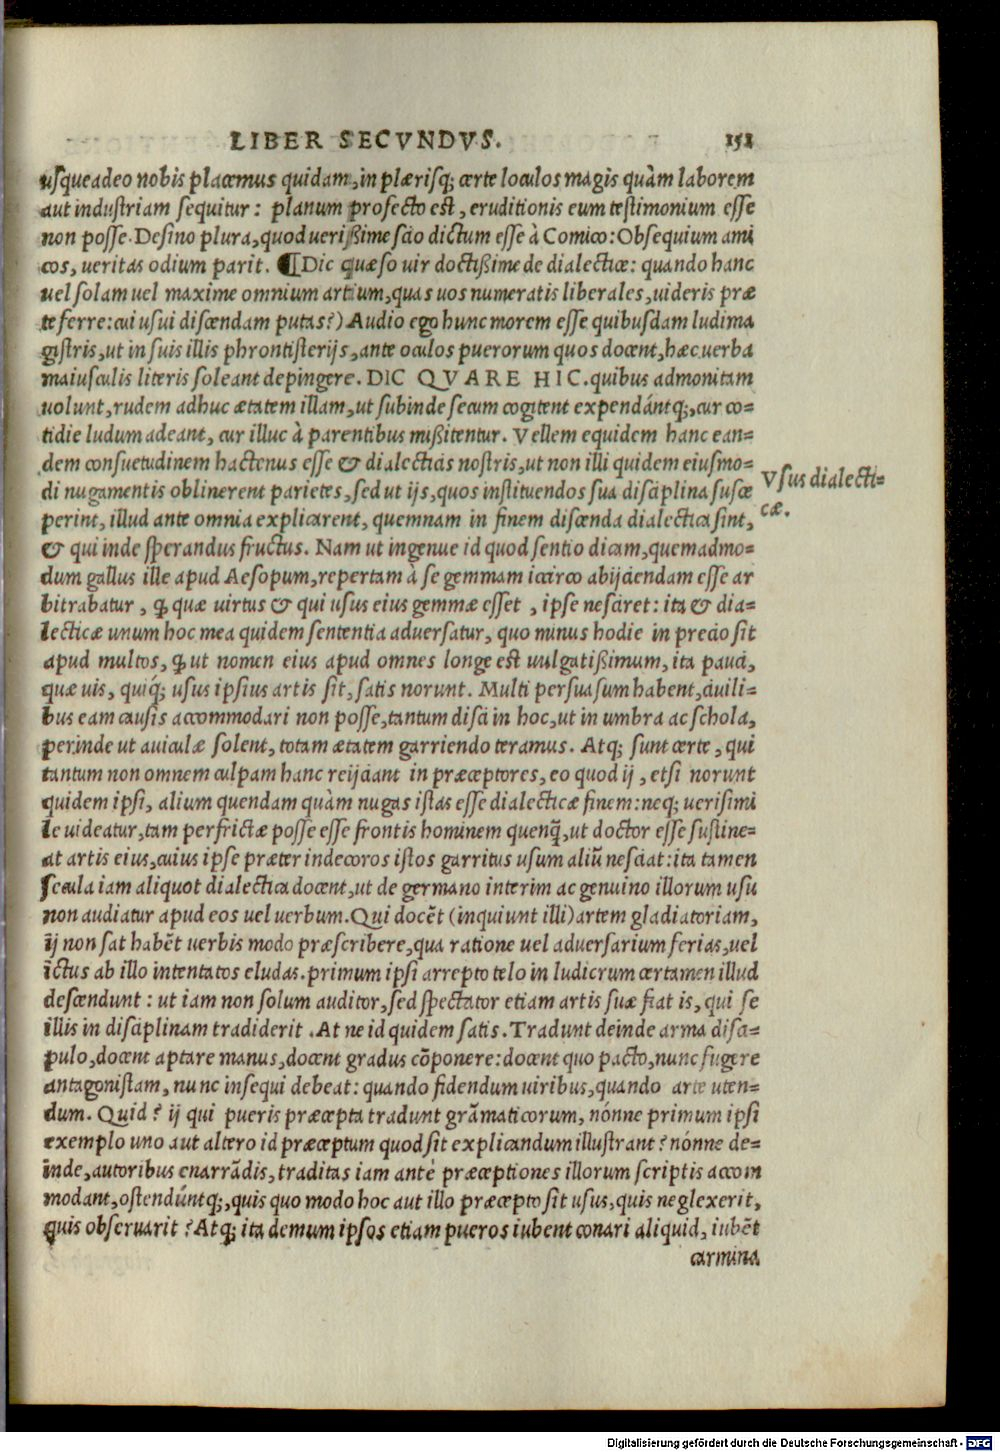 LIBER SECVNDVS. 151
usqueadeo nobis placemus quidam, in plærisq; certe loculos magis quàm laborem
aut industriam sequitur: planum profecto est, eruditionis eum testimonium esse
non posse. Desino plura, quod uerißime scio dictum esse à Comico: Obsequium ami
cos, ueritas odium parit. ¶Dic quæso uir doctißime de dialectica: quando hanc
uel solam uel maxime omnium artium, quas uos numeratis liberales, uideris præ
te ferre: cui usui discendam putas?) Audio ego hunc morem esse quibusdam ludima
gistris, ut in suis illis phrontisterijs, ante oculos puerorum quos docent, hæc uerba
maiusculis literis soleant depingere. DIC QVARE HIC. quibus admonitam
uolunt, rudem adhuc ætatem illam, ut subinde secum cogitent expendántq;, cur co=
tidie ludum adeant, cur illuc à parentibus mißitentur. Vellem equidem hanc ean=
dem consuetudinem hactenus esse & dialecticis nostris, ut non illi quidem eiusmo=
di nugamentis oblinerent parietes, sed ut ijs, quos instituendos sua disciplina susce
perint, illud ante omnia explicarent, quemnam in finem discenda dialectica sint,
& qui inde sperandus fructus. Nam ut ingenue id quod sentio dicam, quemadmo=
dum gallus ille apud Aesopum, repertam à se gemmam iccirco abijciendam esse ar
bitrabatur, ꝙ quæ uirtus & qui usus eius gemmæ esset, ipse nesciret: ita & dia=
lecticæ unum hoc mea quidem sententia aduersatur, quo minus hodie in precio sit
apud multos, ꝙ ut nomen eius apud omnes longe est uulgatißimum, ita pauci,
quæ uis, quiq́; usus ipsius artis sit, satis norunt. Multi persuasum habent, ciuili=
bus eam causis accommodari non posse, tantum disci in hoc, ut in umbra ac schola,
perinde ut auiculæ solent, totam ætatem garriendo teramus. Atq; sunt certe, qui
tantum non omnem culpam hanc reijciant in præceptores, eo quod ij, etsi norunt
quidem ipsi, alium quendam quàm nugas istas esse dialecticæ finem: neq; uerisimi
le uideatur, tam perfrictæ posse esse frontis hominem quenq̃, ut doctor esse sustine=
at artis eius, cuius ipse præter indecoros istos garritus usum aliũ nesciat: ita tamen
secula iam aliquot dialectica docent, ut de germano interim ac genuino illorum usu
non audiatur apud eos uel uerbum. Qui docẽt (inquiunt illi) artem gladiatoriam,
ij non sat habẽt uerbis modo præscribere, qua ratione uel aduersarium ferias, uel
ictus ab illo intentatos eludas. primum ipsi arrepto telo in ludicrum certamen illud
descendunt: ut iam non solum auditor, sed spectator etiam artis suæ fiat is, qui se
illis in disciplinam tradiderit. At ne id quidem satis. Tradunt deinde arma disci=
pulo, docent aptare manus, docent gradus cõponere: docent quo pacto, nunc fugere
antagonistam, nunc insequi debeat: quando fidendum uiribus, quando arte uten=
dum. Quid? ij qui pueris præcepta tradunt grãmaticorum, nónne primum ipsi
exemplo uno aut altero id præceptum quod sit explicandum illustrant? nónne de=
inde, autoribus enarrãdis, traditas iam antè præceptiones illorum scriptis accom
modant, ostendúntq;, quis quo modo hoc aut illo præcepto sit usus, quis neglexerit,
quis obseruarit? Atq; ita demum ipsos etiam pueros iubent conari aliquid, iubẽt
carmina
Vsus dialecti=
cæ.
Digitalisierung gefördert durch die Deutsche Forschungsgemeinschaft - DFG